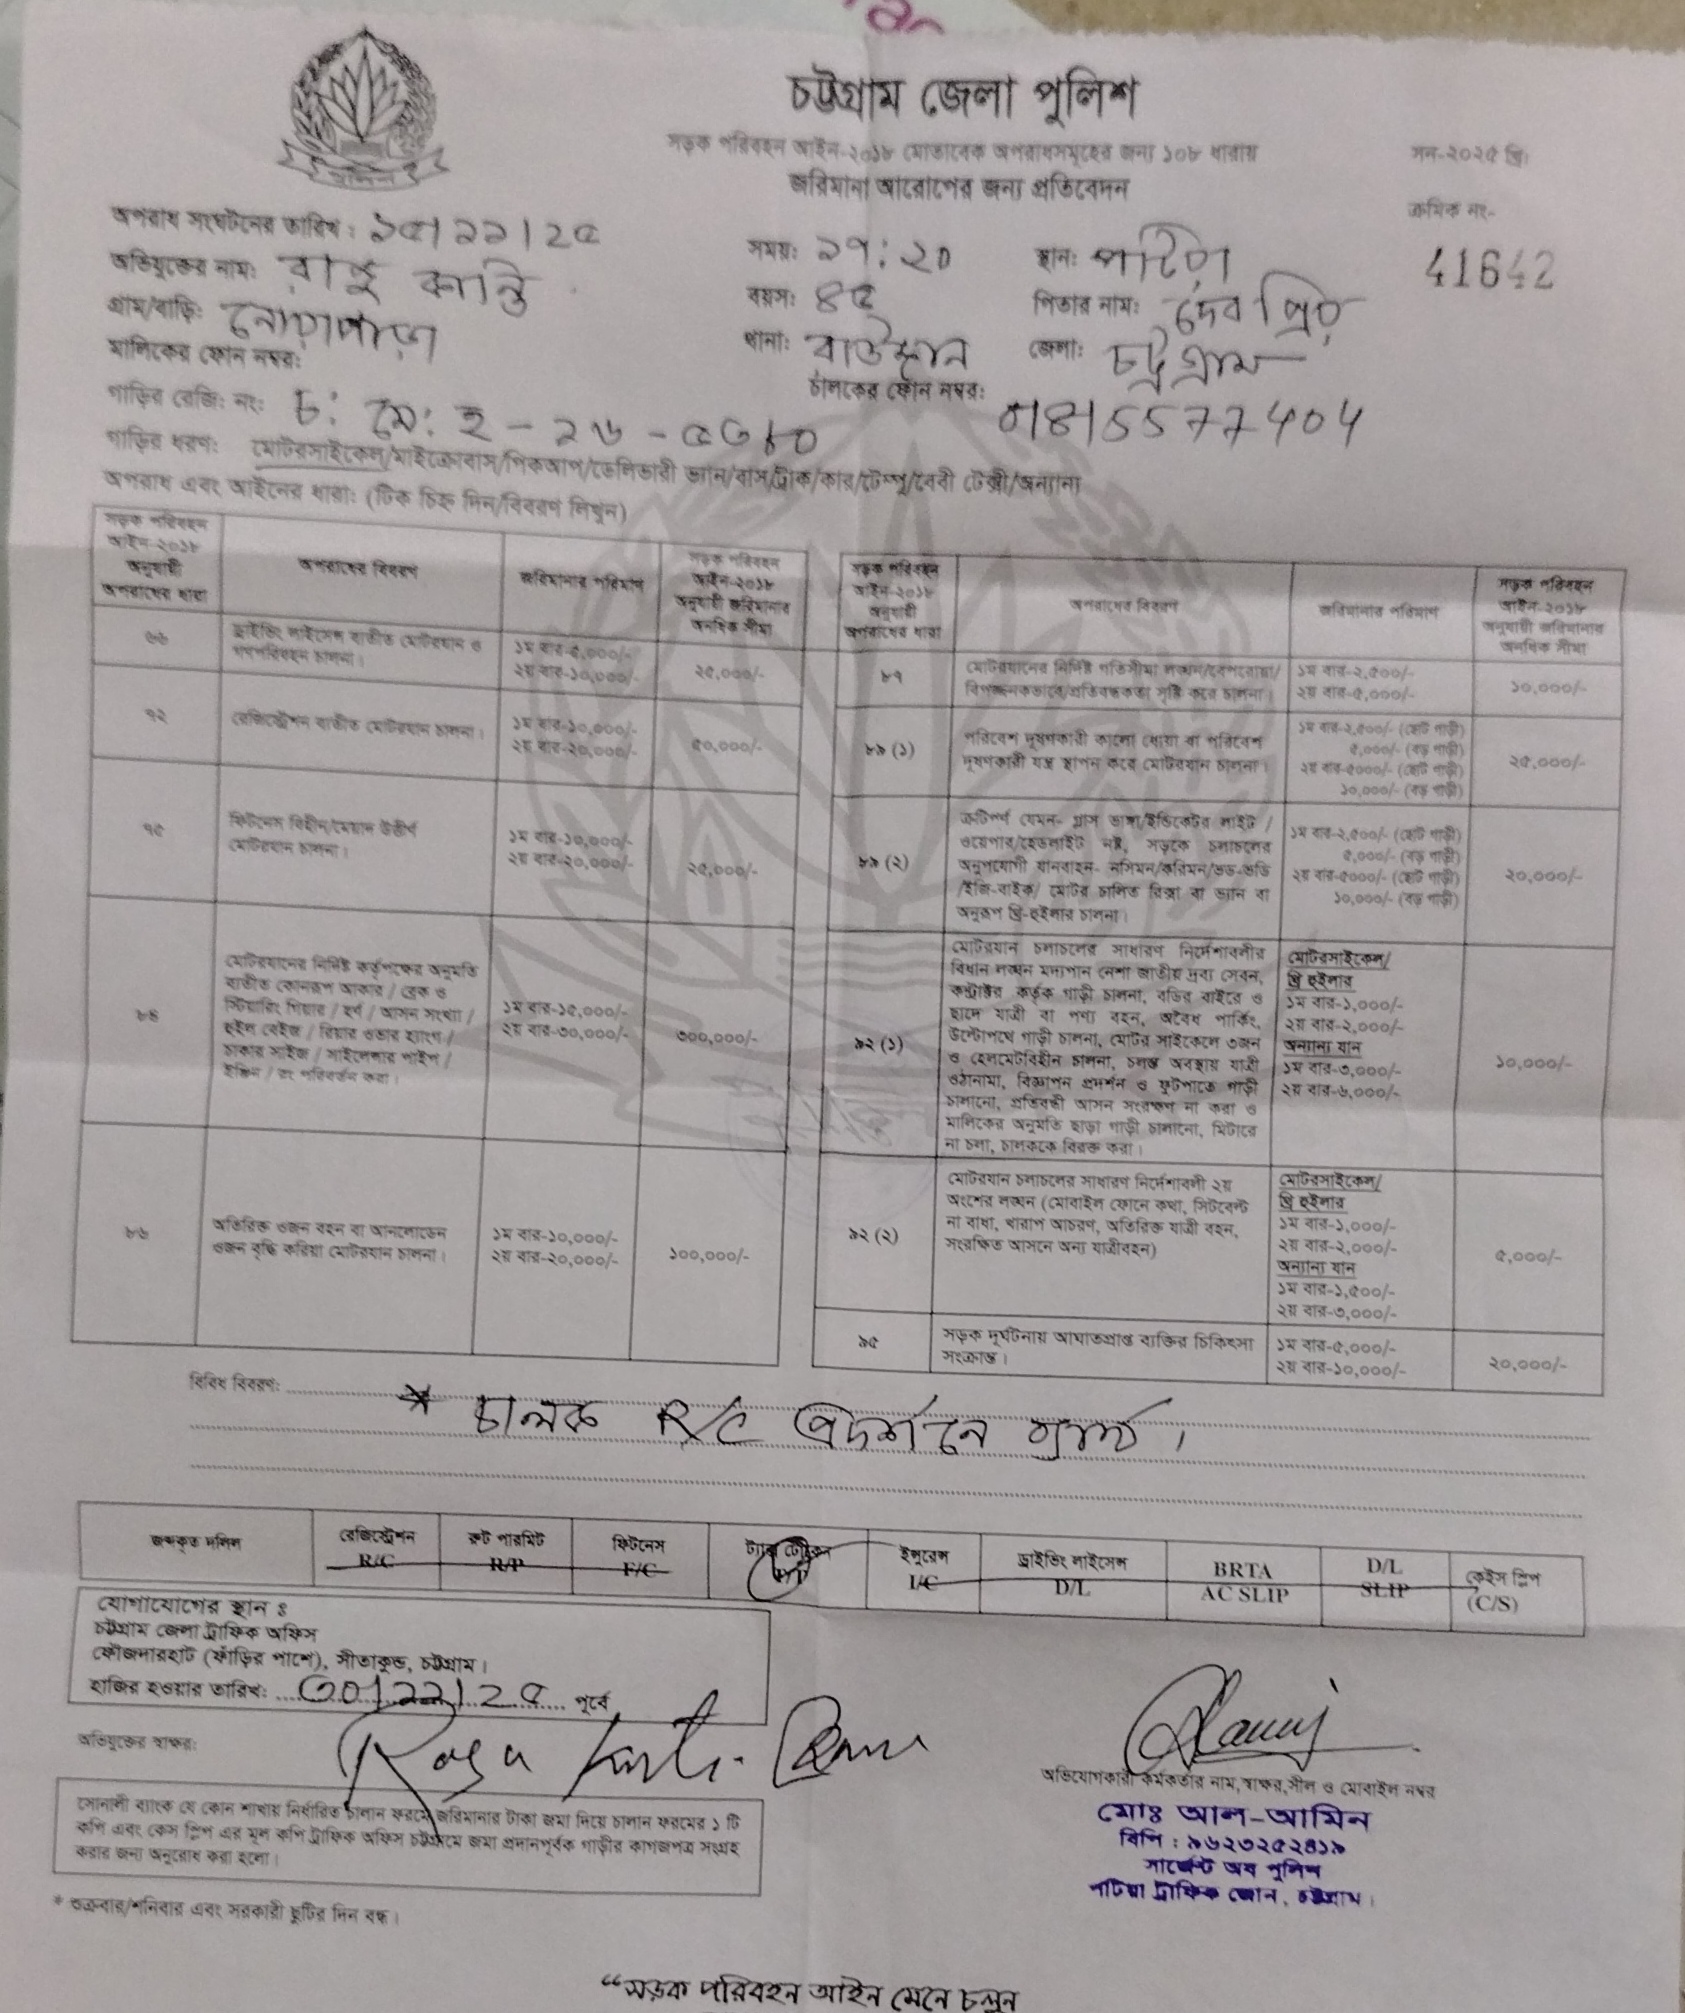 পুলিশ
চট্টগ্রাম জেলা পুলিশ
সড়ক পরিবহন আইন-২০১৮ মোতাবেক অপরাধসমূহের জন্য ১০৮ ধারায়
সন-২০২৫ খ্রি।
জরিমানা আরোপের জন্য প্রতিবেদন
ক্রমিক নং-
41642
অপরাধ সংঘটনের তারিখ : ১৫/১১/২৫
সময়: ১৭:২০ স্থান:
অভিযুক্তের নাম: রাজু কান্তি
বয়স: ৪৫ পিতার নাম: দেব প্রিয়
গ্রাম/বাড়ি: নোয়াপাড়া
থানা: রাউজান জেলা: চট্টগ্রাম
মালিকের ফোন নম্বর:
চালকের ফোন নম্বর: 01815577404
গাড়ির রেজি: নং: চ: মে: হ - ১৬ - ৫৩৮০
গাড়ির ধরণ: মোটরসাইকেল/মাইক্রোবাস/পিকআপ/ডেলিভারী ভ্যান/বাস/ট্রাক/কার/টেম্পু/বেবী টেক্সী/অন্যান্য
অপরাধ এবং আইনের ধারা: (টিক চিহ্ন দিন/বিবরণ লিখুন)
সড়ক পরিবহন
আইন-২০১৮
অনুযায়ী
অপরাধের ধারা
অপরাধের বিবরণ
জরিমানার পরিমাণ
সড়ক পরিবহন
আইন-২০১৮
অনুযায়ী জরিমানার
অনধিক সীমা
৬৬
ড্রাইভিং লাইসেন্স ব্যতীত মোটরযান ও
গণপরিবহন চালনা।
১ম বার-৫,০০০/-
২য় বার-১০,০০০/-
২৫,০০০/-
৭২
রেজিস্ট্রেশন ব্যতীত মোটরযান চালনা।
১ম বার-১০,০০০/-
২য় বার-২০,০০০/-
৫০,০০০/-
৭৫
ফিটনেস বিহীন/মেয়াদ উত্তীর্ণ
মোটরযান চালনা।
১ম বার-১০,০০০/-
২য় বার-২০,০০০/-
২৫,০০০/-
৮৪
মোটরযানের নির্দিষ্ট কর্তৃপক্ষের অনুমতি
ব্যতীত কোনরূপ আকার / ব্রেক ও
স্টিয়ারিং গিয়ার / হর্ণ / আসন সংখ্যা /
হুইল বেইজ / রিয়ার ওভার হ্যাংগ /
চাকার সাইজ / সাইলেন্সার পাইপ /
ইঞ্জিন / রং পরিবর্তন করা।
১ম বার-১৫,০০০/-
২য় বার-৩০,০০০/-
৩০০,০০০/-
৮৬
অতিরিক্ত ওজন বহন বা আনলোডেন
ওজন বৃদ্ধি করিয়া মোটরযান চালনা।
১ম বার-১০,০০০/-
২য় বার-২০,০০০/-
১০০,০০০/-
সড়ক পরিবহন
আইন-২০১৮
অনুযায়ী
অপরাধের ধারা
অপরাধের বিবরণ
জরিমানার পরিমাণ
সড়ক পরিবহন
আইন-২০১৮
অনুযায়ী জরিমানার
অনধিক সীমা
৮৭
মোটরযানের নির্দিষ্ট গতিসীমা লঙ্ঘন/বেপরোয়া/
বিপজ্জনকভাবে/প্রতিবন্ধকতা সৃষ্টি করে চালনা।
১ম বার-২,৫০০/-
২য় বার-৫,০০০/-
১০,০০০/-
৮৯ (১)
পরিবেশ দূষণকারী কালো ধোয়া বা পরিবেশ
দূষণকারী যন্ত্র স্থাপন করে মোটরযান চালনা।
১ম বার-২,৫০০/- (ছোট গাড়ী)
৫,০০০/- (বড় গাড়ী)
২য় বার-৫০০০/- (ছোট গাড়ী)
১০,০০০/- (বড় গাড়ী)
২৫,০০০/-
৮৯ (২)
ত্রুটিপূর্ণ যেমন- গ্লাস ভাঙ্গা/ইন্ডিকেটর লাইট /
ওয়েপার/হেডলাইট নষ্ট, সড়কে চলাচলের
অনুপযোগী যানবাহন- নসিমন/করিমন/ভড-ভডি
/ইজি-বাইক/ মোটর চালিত রিক্সা বা ভ্যান বা
অনুরূপ থ্রি-হুইলার চালনা।
১ম বার-২,৫০০/- (ছোট গাড়ী)
৫,০০০/- (বড় গাড়ী)
২য় বার-৫০০০/- (ছোট গাড়ী)
১০,০০০/- (বড় গাড়ী)
২০,০০০/-
৯২ (১)
মোটরযান চলাচলের সাধারণ নির্দেশাবলীর
বিধান লঙ্ঘন মদ্যপান নেশা জাতীয় দ্রব্য সেবন,
কন্ট্রাক্টর কর্তৃক গাড়ী চালনা, বডির বাইরে ও
ছাদে যাত্রী বা পণ্য বহন, অবৈধ পার্কিং,
উল্টোপথে গাড়ী চালনা, মোটর সাইকেলে ৩জন
ও হেলমেটবিহীন চালনা, চলন্ত অবস্থায় যাত্রী
ওঠানামা, বিজ্ঞাপন প্রদর্শন ও ফুটপাতে গাড়ী
চালানো, প্রতিবন্ধী আসন সংরক্ষণ না করা ও
মালিকের অনুমতি ছাড়া গাড়ী চালানো, মিটারে
না চলা, চালককে বিরক্ত করা।
মোটরসাইকেল/
থ্রি হুইলার
১ম বার-১,০০০/-
২য় বার-২,০০০/-
অন্যান্য যান
১ম বার-৩,০০০/-
২য় বার-৬,০০০/-
১০,০০০/-
৯২ (২)
মোটরযান চলাচলের সাধারণ নির্দেশাবলী ২য়
অংশের লঙ্ঘন (মোবাইল ফোনে কথা, সিটবেল্ট
না বাধা, খারাপ আচরণ, অতিরিক্ত যাত্রী বহন,
সংরক্ষিত আসনে অন্য যাত্রীবহন)
মোটরসাইকেল/
থ্রি হুইলার
১ম বার-১,০০০/-
২য় বার-২,০০০/-
অন্যান্য যান
১ম বার-১,৫০০/-
২য় বার-৩,০০০/-
৫,০০০/-
৯৫
সড়ক দূর্ঘটনায় আঘাতপ্রাপ্ত ব্যক্তির চিকিৎসা
সংক্রান্ত।
১ম বার-৫,০০০/-
২য় বার-১০,০০০/-
২০,০০০/-
বিবিধ বিবরণ:
* চালক R/C প্রদর্শনে ব্যর্থ।
জব্দকৃত দলিল
রেজিস্ট্রেশন
R/C
রুট পারমিট
R/P
ফিটনেস
F/C
ট্যাক্স টোকেন
ইন্সুরেন্স
I/C
ড্রাইভিং লাইসেন্স
D/L
BRTA
AC SLIP
D/L
SLIP
কেইস স্লিপ
(C/S)
যোগাযোগের স্থান ঃ
চট্টগ্রাম জেলা ট্রাফিক অফিস
ফৌজদারহাট (ফাঁড়ির পাশে), সীতাকুন্ড, চট্টগ্রাম।
হাজির হওয়ার তারিখ: ৩০/১১/২৫ পূর্বে
অভিযুক্তের স্বাক্ষর:
অভিযোগকারী কর্মকর্তার নাম,স্বাক্ষর,সীল ও মোবাইল নম্বর
মোঃ আল-আমিন
বিপি : ৯৬২৩২৫২৪১৯
সার্জেন্ট অব পুলিশ
পটিয়া ট্রাফিক জোন, চট্টগ্রাম।
সোনালী ব্যাংক যে কোন শাখায় নির্ধারিত চালান ফরমে জরিমানার টাকা জমা দিয়ে চালান ফরমের ১ টি
কপি এবং কেস স্লিপ এর মূল কপি ট্রাফিক অফিস চট্টগ্রামে জমা প্রদানপূর্বক গাড়ীর কাগজপত্র সংগ্রহ
করার জন্য অনুরোধ করা হলো।
* শুক্রবার/শনিবার এবং সরকারী ছুটির দিন বন্ধ।
“সড়ক পরিবহন আইন মেনে চলুন